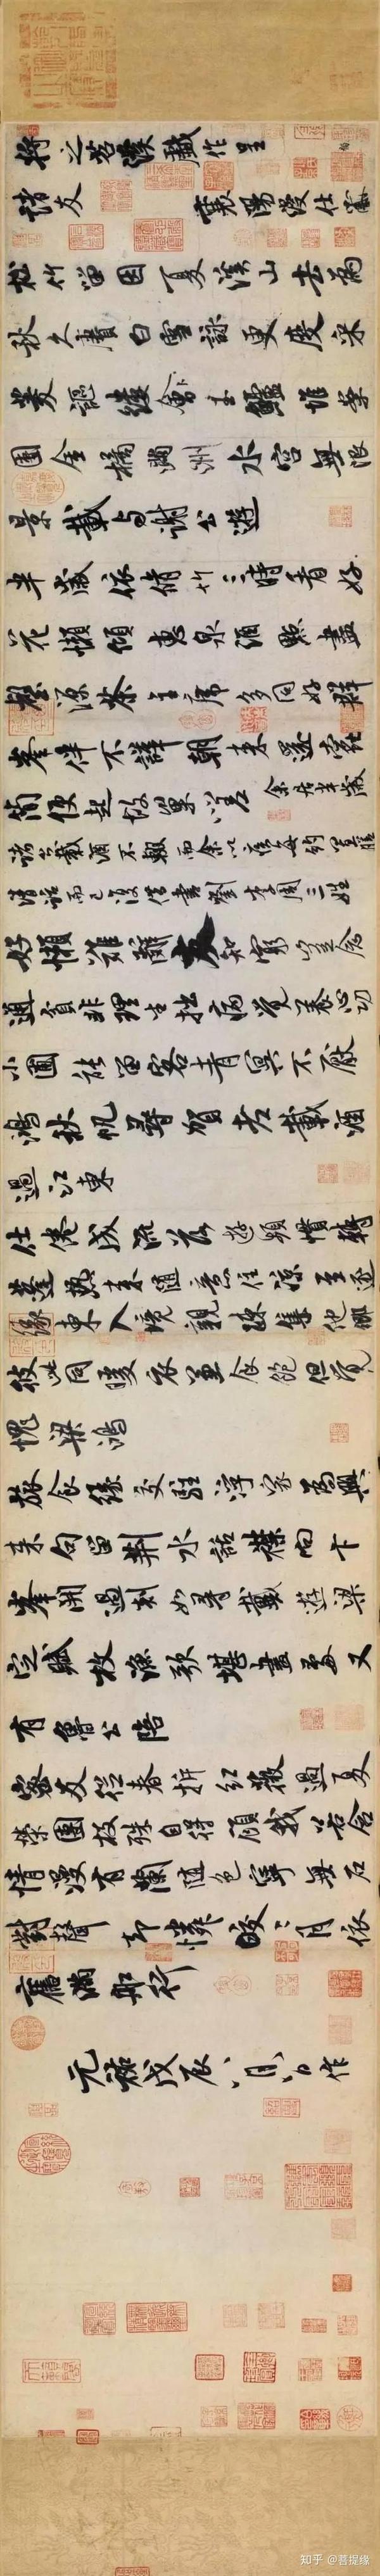 將之苕溪戲作呈
諸友 襄陽漫仕黻
松竹留因夏溪山去為
秋久賡白雪詠更度采
菱謳縷會玉鱸堆案
團金橘滿洲水宮無限
景載與謝公遊
半歲依脩竹三時看好
花懶傾惠泉酒點盡
壑源茶主席多同好群
峯伴不譁朝來還蠹
簡便起故巢嗟 余居半歲
諸公載酒不輟而余以疾每約置膳
清話而已復借書劉李周三姓
好懶難辭友知窮豈念
通貧非理生拙病覺養心功
小圃能留客青冥不厭
鴻秋帆尋賀老載酒
過江東
仕倦成流落遊頻慣轉
蓬熱來隨意住涼至逐
緣東入境親疎集他鄉
彼此同暖衣兼食飽但覺
愧梁鴻
旅食緣交駐浮家為興
來句留荊水話襟向卞
峯開過剡如尋戴遊梁
定賦枚漁歌堪畫處又
有魯公陪
密友從春拆紅薇過夏
榮團枝殊自得顧我若含
情漫有蘭隨色寧無石
對聲却憐皎〻月依
舊滿船行
元祐戊辰八月八日作
知乎 @菩提缘